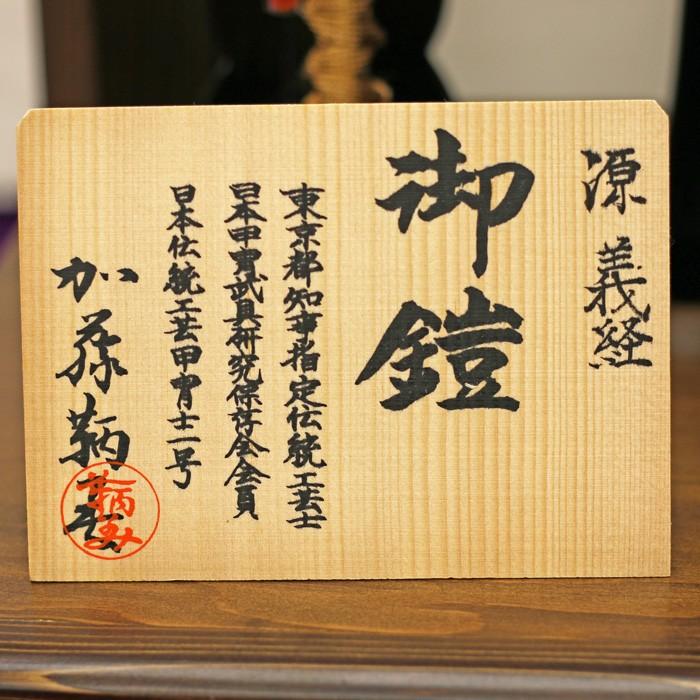 源 義経
御鎧
東京都知事指定伝統工芸士
日本甲冑武具研究保存会会員
日本伝統工芸甲冑士一号
加藤鞆美
鞆美